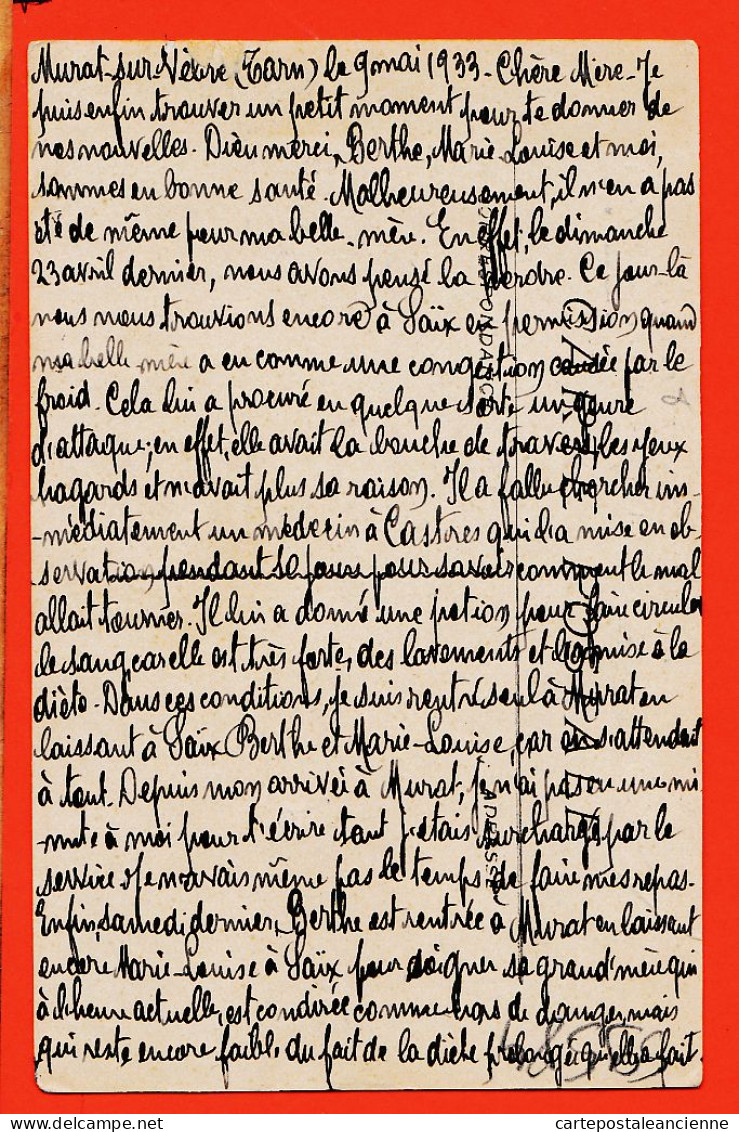 Murat-sur-Vèbre (Tarn) le 9 mai 1933 - Chère Mère - Je
puis enfin trouver un petit moment pour te donner de
nos nouvelles. Dieu merci, Berthe, Marie-Louise et moi,
sommes en bonne santé. Malheureusement, il n'en a pas
été de même pour ma belle-mère. En effet, le dimanche
23 avril dernier, nous avons pensé la perdre. Ce jour-là
nous nous trouvions encore à Saïx en permission, quand
ma belle-mère a eu comme une congestion causée par le
froid. Cela lui a procuré en quelque sorte un genre
d'attaque; en effet, elle avait la bouche de travers, les yeux
hagards et n'avait plus sa raison. Il a fallu chercher im-
-médiatement un médecin à Castres qui l'a mise en ob-
servation pendant 10 jours pour savoir comment le mal
allait tourner. Il lui a donné une potion pour faire circuler
le sang, car elle est très forte, des lavements et l'a mise à la
diète. Dans ces conditions, je suis rentré seul à Murat en
laissant à Saïx Berthe et Marie-Louise, car on s'attendait
à tout. Depuis mon arrivée à Murat, je n'ai pas eu une mi-
nute à moi pour t'écrire tant j'étais surchargé par le
service. Je n'avais même pas le temps de faire mes repas.
Enfin, samedi dernier, Berthe est rentrée à Murat en laissant
encore Marie-Louise à Saïx pour soigner sa grand'mère qui
à l'heure actuelle, est considérée comme hors de danger, mais
qui reste encore faible du fait de la diète prolongée qu'elle a fait.
CARTE POSTALE
CORRESPONDANCE
ADRESSE
cartepostaleancienne